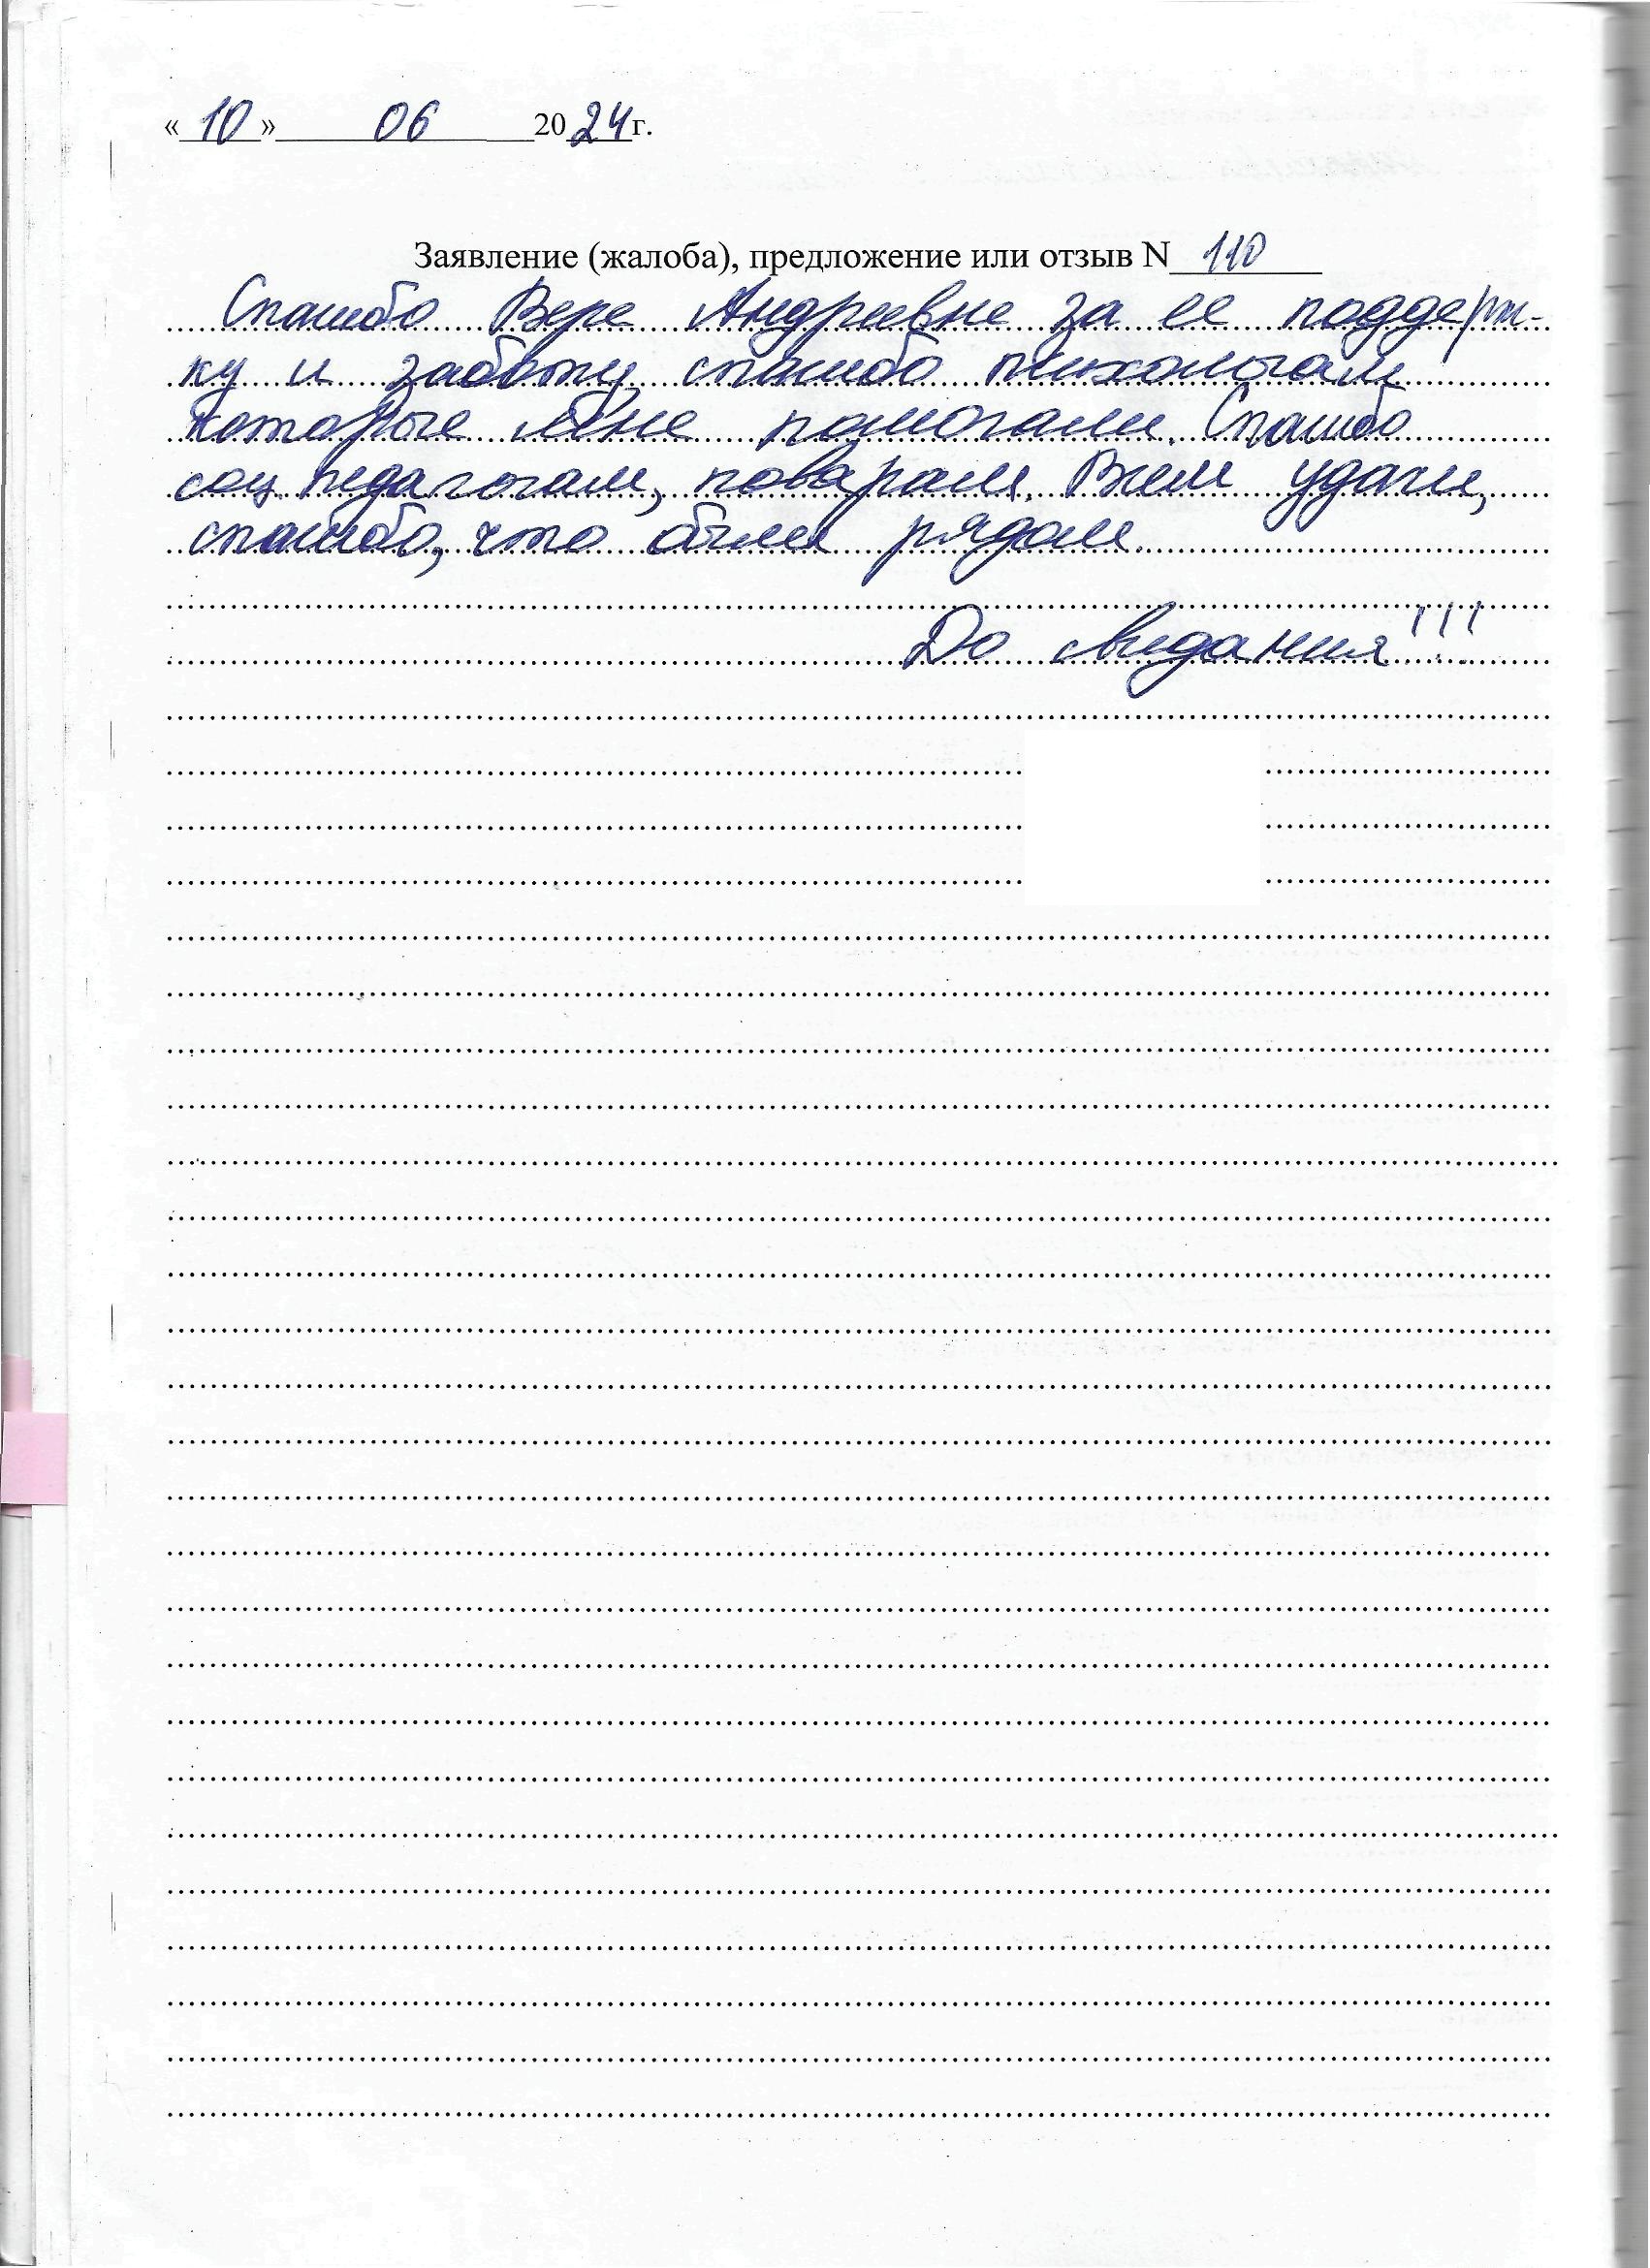 «10» 06 2024г.
Заявление (жалоба), предложение или отзыв N 110
Спасибо Вере Андреевне за ее поддерж-
ку и заботу, спасибо психологам
которые мне помогали. Спасибо
соц. педагогам, поварам. Всем удачи,
спасибо, что были рядом.
До свидания!!!